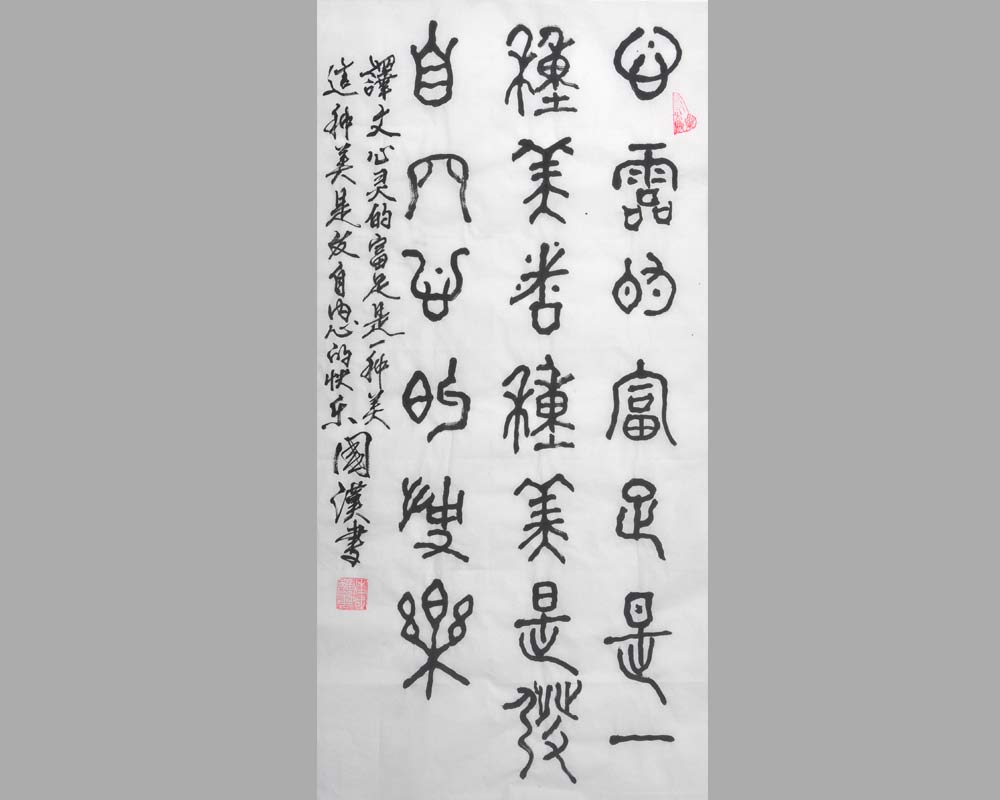 心靈的富足是一
種美這種美是發
自内心的快樂
譯文心灵的富足是一种美
这种美是发自内心的快乐 國漢書